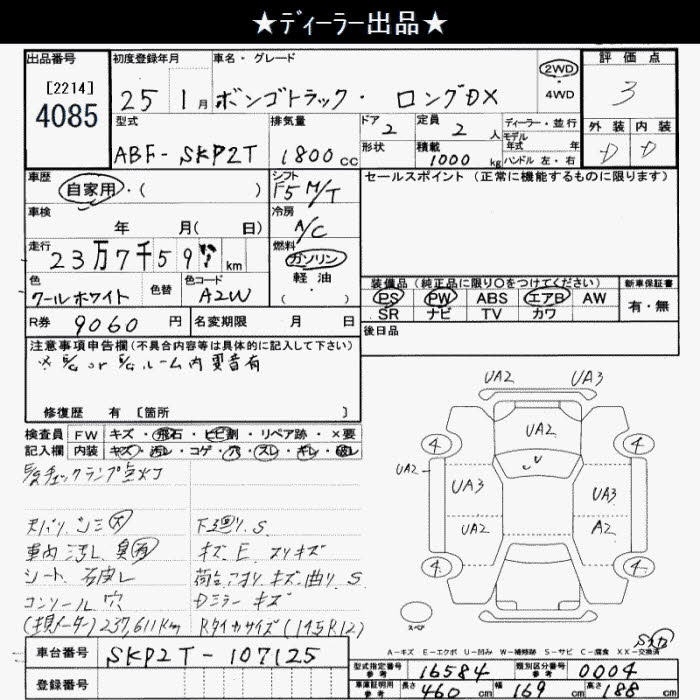 ★ディーラー出品★
出品番号
[2214]
4085
初度登録年月
25 1月
車名・グレード
ボンゴトラック・ ロングDX
2WD
・
4WD
評価点
3
型式
ABF-SKP2T
排気量
1800cc
ドア
2
定員
2 人
ディーラー・並行
モデル
年式 年
形状
積載
1000 kg
ハンドル 左・右
外装 内装
D D
車歴
自家用・( )
シフト
F5 M/T
セールスポイント(正常に機能するものに限ります)
車検
年 月( 日)
冷房
A/C
走行
23万7千59 km
燃料
ガソリン
軽油
・( )
色
クールホワイト
色替
色コード
A2W
装備品(純正品に限り〇をつけてください)
新車保証書
PS PW ABS エアB AW
有・無
SR ナビ TV カワ
R券 9060 円
名変期限 月 日
後日品
注意事項申告欄(不具合内容等は具体的に記入して下さい)
※ E/G or E/G ルーム内 異音有
修復歴 有 [箇所 ]
検査員 FW キズ・飛石・ヒビ割・リペア跡・×要
記入欄 内装 キズ・汚レ・コゲ・穴・スレ・キレ・破レ
E/Gチェックランプ点灯
天バリ シミ大
下回リ.S.
車内 汚レ 臭有
キズ E スリキズ
シート 石皮レ
荷台 コボリ キズ 曲リ S
コンソール 穴
Dミラー キズ
(現メーター)237,611Km
Rタイヤサイズ(145R12)
車台番号 SKP2T-107125
登録番号
UA2 UA3
UA2
4 4
UA2
UA3 UA3
UA2 A2
4 4
スペア
A-キズ E-エクボ U-凹み W-補修跡 S-サビ C-腐食 XX-交換済
型式指定番号
参考
16584
類別区分番号
参考
0004
車庫証明用
参考
長さ 460 cm
幅 169 cm
高さ 188 cm